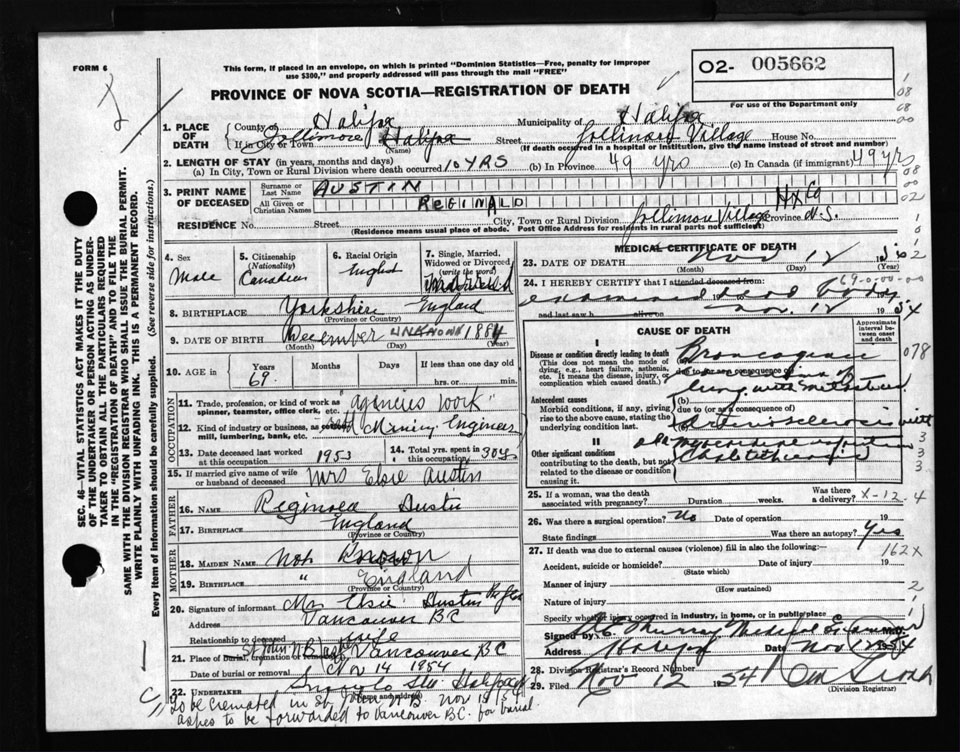 FORM 6
This form, if placed in an envelope, on which is printed "Dominion Statistics—Free, penalty for improper
use $300," and properly addressed will pass through the mail "FREE"
O2- 005662
For use of the Department only
PROVINCE OF NOVA SCOTIA—REGISTRATION OF DEATH
1. PLACE OF DEATH
County of Halifax Municipality of Halifax
If in City or Town Jollimore Halifax (Name) Street Jollimore Village House No.
(If death occurred in a hospital or institution, give the name instead of street and number)
2. LENGTH OF STAY (in years, months and days)
(a) In City, Town or Rural Division where death occurred 10 YRS (b) In Province 49 yrs (c) In Canada (if immigrant) 49 yrs
3. PRINT NAME OF DECEASED
Surname or Last Name AUSTIN
All Given or Christian Names REGINALD
Hx Co
RESIDENCE No. Street City, Town or Rural Division Jollimore Village Province N.S.
(Residence means usual place of abode. Post Office Address for residents in rural parts not sufficient)
4. SEX
Male
5. Citizenship (Nationality)
Canadian
6. Racial Origin
English
7. Single, Married, Widowed or Divorced (write the word)
Married
8. BIRTHPLACE Yorkshire England
(Province or Country)
9. DATE OF BIRTH December UNKNOWN 1884
(Month) (Day) (Year)
10. AGE in Years 69 Months Days If less than one day
hrs. or min.
OCCUPATION
11. Trade, profession, or kind of work as spinner, teamster, office clerk, etc. "agencies work"
12. Kind of industry or business, as mill, lumbering, bank, etc. Mining Engineer
13. Date deceased last worked at this occupation 1953
14. Total yrs. spent in this occupation 30 yrs
15. If married give name of wife or husband of deceased Mrs Elsie Austin
FATHER
16. NAME Reginald Austin
17. BIRTHPLACE England
(Province or Country)
MOTHER
18. MAIDEN NAME Not Known
19. BIRTHPLACE " England
(Province or Country)
20. Signature of informant Mrs Elsie Austin
Address Vancouver BC
Relationship to deceased wife
21. Place of burial, cremation or removal St John N.B. Vancouver BC
Date of burial or removal Nov 14 1954
22. UNDERTAKER Halifax
(Name and address)
to be cremated in St. John N.B. Nov 15/54
ashes to be forwarded to Vancouver B.C. for burial
MEDICAL CERTIFICATE OF DEATH
23. DATE OF DEATH Nov 12 1954
(Month) (Day) (Year)
24. I HEREBY CERTIFY that I attended deceased from:
examined dead body
and last saw h alive on Nov. 12 1954
CAUSE OF DEATH
Approximate interval between onset and death
I
Disease or condition directly leading to death
(This does not mean the mode of dying, e.g., heart failure, asthenia, etc. It means the disease, injury, or complication which caused death.)
(a) Broncogenic
due to (or as a consequence of)
lung with metastases
Antecedent causes
Morbid conditions, if any, giving rise to the above cause, stating the underlying condition last.
(b)
due to (or as a consequence of)
Arteriosclerosis with
II
Other significant conditions
contributing to the death, but not related to the disease or condition causing it.
old myocardial infarction
078
3
3
3
25. If a woman, was the death associated with pregnancy? Duration weeks. Was there a delivery? X-12-4
26. Was there a surgical operation? No Date of operation 19
State findings Was there an autopsy? Yes
27. If death was due to external causes (violence) fill in also the following:— 162X
Accident, suicide or homicide? Date of injury 19
(State which)
Manner of injury
(How sustained)
2
Nature of injury
1
Specify whether injury occurred in industry, in home, or in public place
Signed by Murray Medical Examiner
Address Halifax Date Nov 1954
28. Division Registrar's Record Number
29. Filed Nov 12 1954
(Division Registrar)
SEC. 46—VITAL STATISTICS ACT MAKES IT THE DUTY
OF THE UNDERTAKER OR PERSON ACTING AS UNDER-
TAKER TO OBTAIN ALL THE PARTICULARS REQUIRED
IN THE "REGISTRATION OF DEATH" AND TO FILE THE
SAME WITH THE DIVISION REGISTRAR WHO SHALL ISSUE THE BURIAL PERMIT.
WRITE PLAINLY WITH UNFADING INK. THIS IS A PERMANENT RECORD.
Every item of information should be carefully supplied. (See reverse side for instructions.)